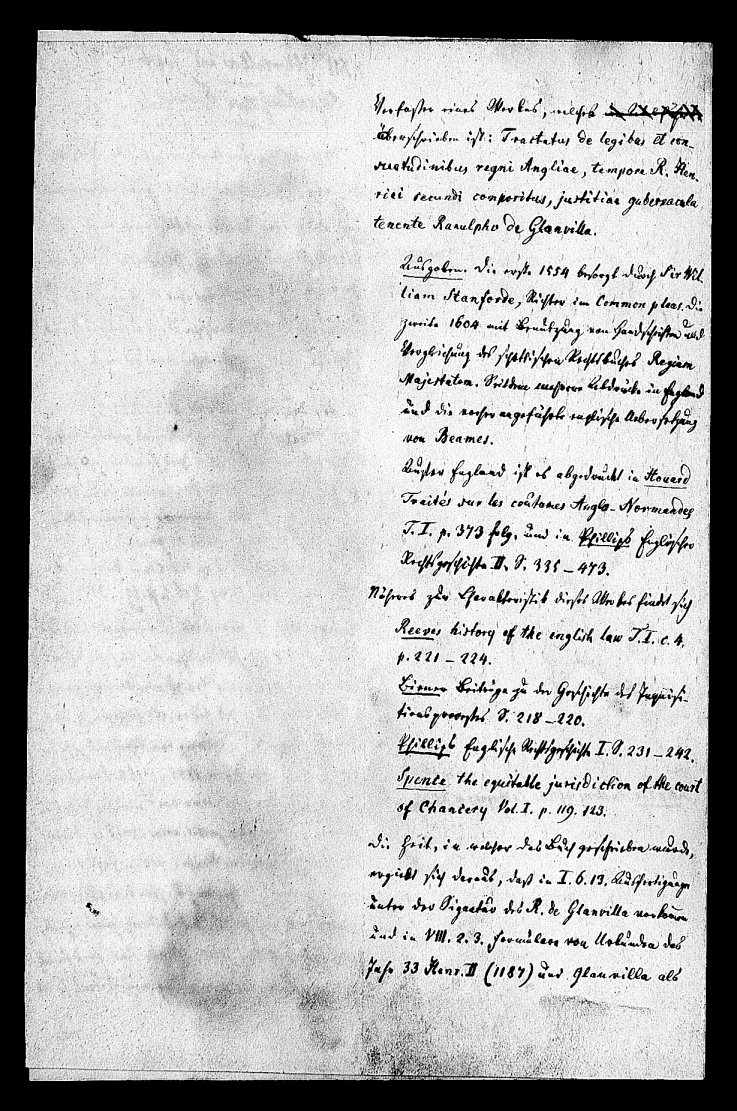 Verfasser eines Werkes, welches
überschrieben ist: Tractatus de legibus et con-
suetudinibus regni Angliae, tempore R. Hen-
rici secundi compositus, justitiae gubernacula
tenente Ranulpho de Glanvilla.
Ausgaben. Die erste 1554 besorgt durch Sir Wil-
liam Stanforde, Richter im Common pleas. Die
zweite 1604 mit Benutzung von Handschriften und
Vergleichung des schottischen Rechtsbuches Regiam
Majestatem. Seitdem mehrere Abdrücke in England
und die vorher angeführte englische Uebersetzung
von Beames.
Ausser England ist es abgedruckt in Houard
Traités sur les coutumes Anglo-Normandes
T. I. p. 373 folg. und in Phillips Englischer
Rechtsgeschichte II. S. 335 – 473.
Näheres zur Charakteristik dieses Werkes findet sich
Reeves history of the english law T. I. c. 4.
p. 221 – 224.
Biener Beiträge zu der Geschichte des Inquisi-
tionsprocesses S. 218 – 220.
Phillips Englische Rechtsgeschichte I. S. 231 – 242.
Spence the equitable jurisdiction of the court
of Chancery Vol. I. p. 119. 123.
Die Zeit, in welcher das Buch geschrieben wurde,
ergiebt sich daraus, daß in I. 6. 13. Ausfertigungen
unter der Signatur des R. de Glanvilla vorkommen
und in VIII. 2. 3. Formulare von Urkunden das
Jahr 33 Henr. II (1187) und Glanvilla als